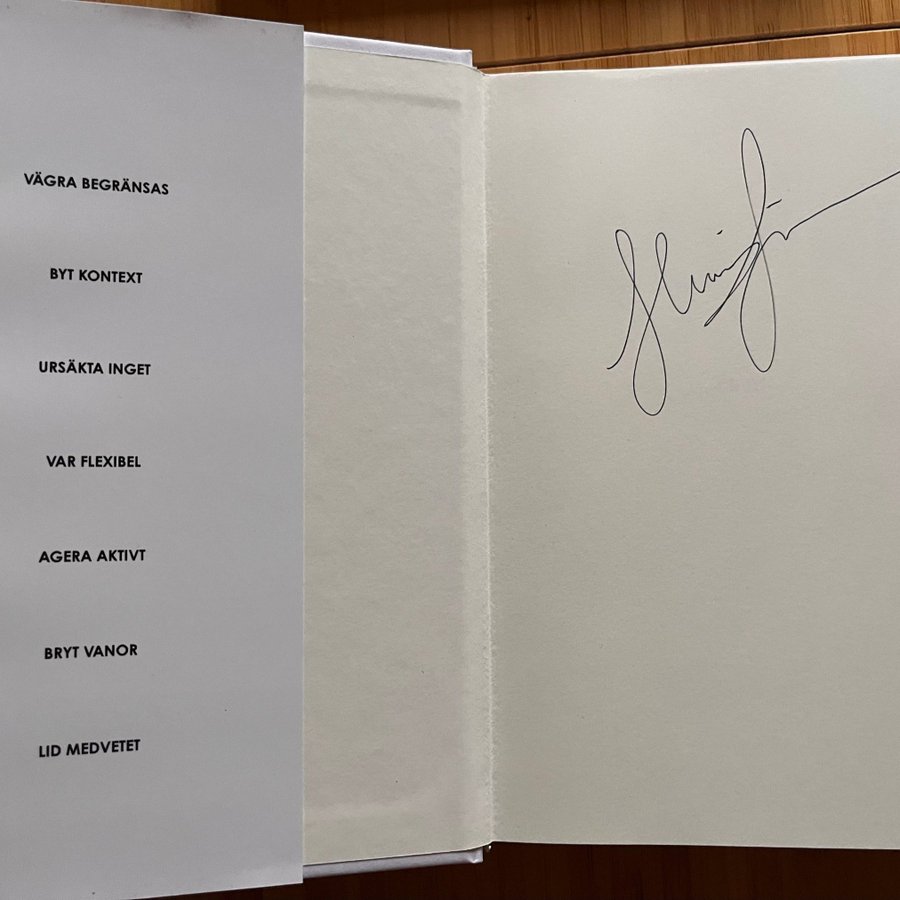 VÄGRA BEGRÄNSAS
BYT KONTEXT
URSÄKTA INGET
VAR FLEXIBEL
AGERA AKTIVT
BRYT VANOR
LID MEDVETET